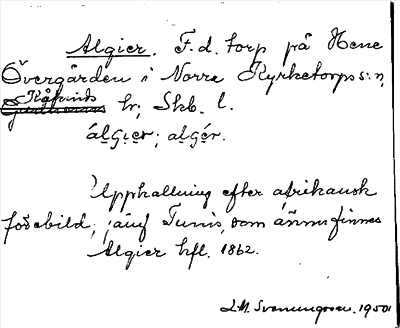 Algier. F.d. torp på Hene
Övergården i Norra Kyrketorps s:n,
Kåkinds
hr, Skb. l.
álgier; algér.
Uppkallning efter afrikansk
förebild; jämf Tunis, som ännu finnes
Algier hfl. 1862.
L.M. Svenungsson. 1950